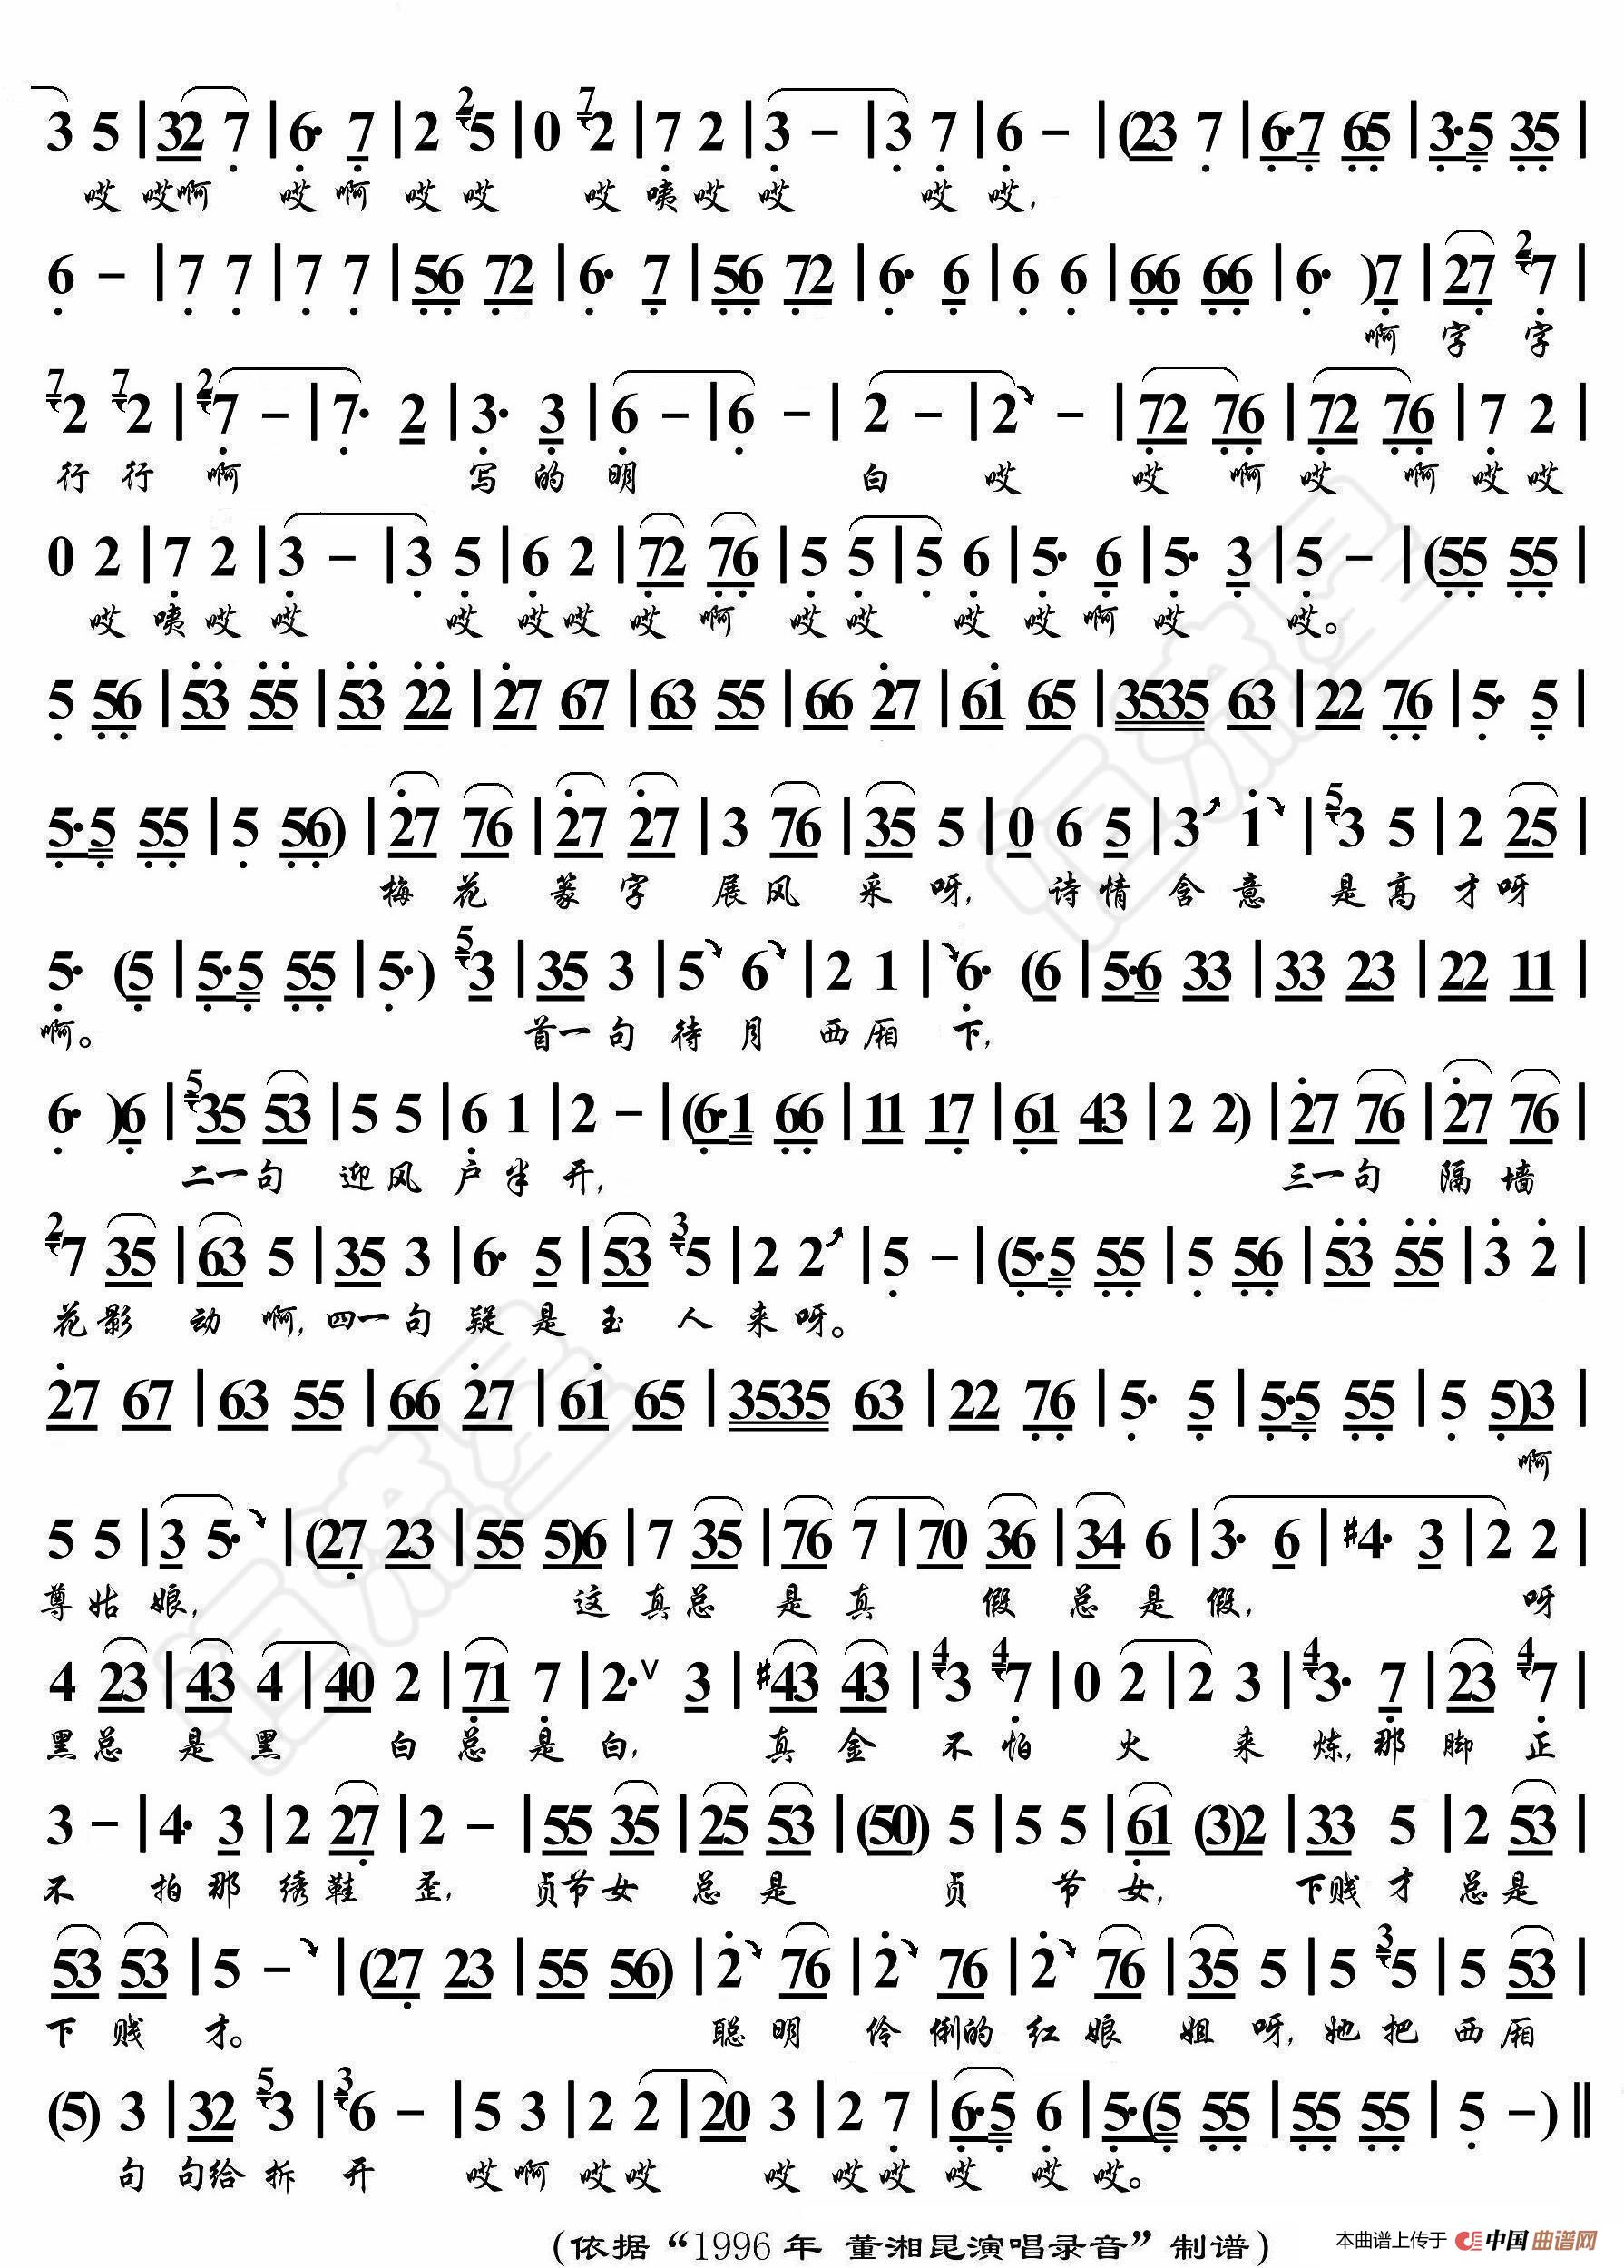 3 5 | 32 7 | 6· 7 | 2 25 | 0 72 | 7 2 | 3 - | 3 7 | 6 - | (23 7 | 6·7 65 | 3·5 35 |
哎 哎啊 哎 啊 哎 哎 哎 咦 哎 哎 哎 哎,
6 - | 7 7 | 7 7 | 56 72 | 6· 7 | 56 72 | 6· 6 | 6 6 | 66 66 | 6· )7 | 27 27 |
啊 字 字
72 72 | 27 - | 7· 2 | 3· 3 | 6 - | 6 - | 2 - | 2 - | 72 76 | 72 76 | 7 2 |
行 行 啊 写 的 明 白 哎 哎 啊 哎 啊 哎 哎
0 2 | 7 2 | 3 - | 3 5 | 6 2 | 72 76 | 5 5 | 5 6 | 5· 6 | 5· 3 | 5 - | (55 55 |
哎 咦 哎 哎 哎 哎 哎 哎 啊 哎 哎 哎 哎 啊 哎 哎。
5 56 | 53 55 | 53 22 | 27 67 | 63 55 | 66 27 | 61 65 | 3535 63 | 22 76 | 5· 5 |
5·5 55 | 5 56) | 27 76 | 27 27 | 3 76 | 35 5 | 0 6 5 | 3 1 | 53 5 | 2 25 |
梅 花 篆 字 展 风 采 呀, 诗 情 含 意 是 高 才 呀
5· (5 | 5·5 55 | 5·) 53 | 35 3 | 5 6 | 2 1 | 6· (6 | 5·6 33 | 33 23 | 22 11 |
啊。 首一 句 待 月 西 厢 下,
6· )6 | 535 53 | 5 5 | 6 1 | 2 - | (6·1 66 | 11 17 | 61 43 | 2 2) | 27 76 | 27 76 |
二一 句 迎 风 户 半 开, 三一 句 隔 墙
27 35 | 63 5 | 35 3 | 6· 5 | 53 35 | 2 2 | 5 - | (5·5 55 | 5 56 | 53 55 | 3 2 |
花 影 动 啊, 四一 句 疑 是 玉 人 来 呀。
27 67 | 63 55 | 66 27 | 61 65 | 3535 63 | 22 76 | 5· 5 | 5·5 55 | 5 5)3 |
啊
5 5 | 3 5· | (27 23 | 55 5)6 | 7 35 | 76 7 | 70 36 | 34 6 | 3· 6 | #4· 3 | 2 2 |
尊 姑 娘, 这 真 总 是 真 假 总 是 假, 呀
4 23 | 43 4 | 40 2 | 71 7 | 2·∨ 3 | #43 43 | 43 47 | 0 2 | 2 3 | 43· 7 | 23 47 |
黑 总 是 黑 白 总 是 白, 真 金 不 怕 火 来 炼, 那 脚 正
3 - | 4· 3 | 2 27 | 2 - | 55 35 | 25 53 | (50) 5 | 5 5 | 61 (3)2 | 33 5 | 2 53 |
不 拍 那 绣 鞋 歪, 贞节 女 总 是 贞 节 女, 下贱 才 总 是
53 53 | 5 - | (27 23 | 55 56) | 2 76 | 2 76 | 2 76 | 35 5 | 5 35 | 5 53 |
下 贱 才。 聪 明 伶 俐的 红 娘 姐 呀, 她 把 西 厢
(5) 3 | 32 53 | 36 - | 5 3 | 2 2 | 20 3 | 2 7 | 6·5 6 | 5·(5 55 | 55 55 | 5 -) ‖
句 句给 拆 开 哎 啊 哎 哎 哎 哎 哎 哎 哎 哎。
(依据“1996年 董湘昆演唱录音”制谱)
本曲谱上传于 中国曲谱网